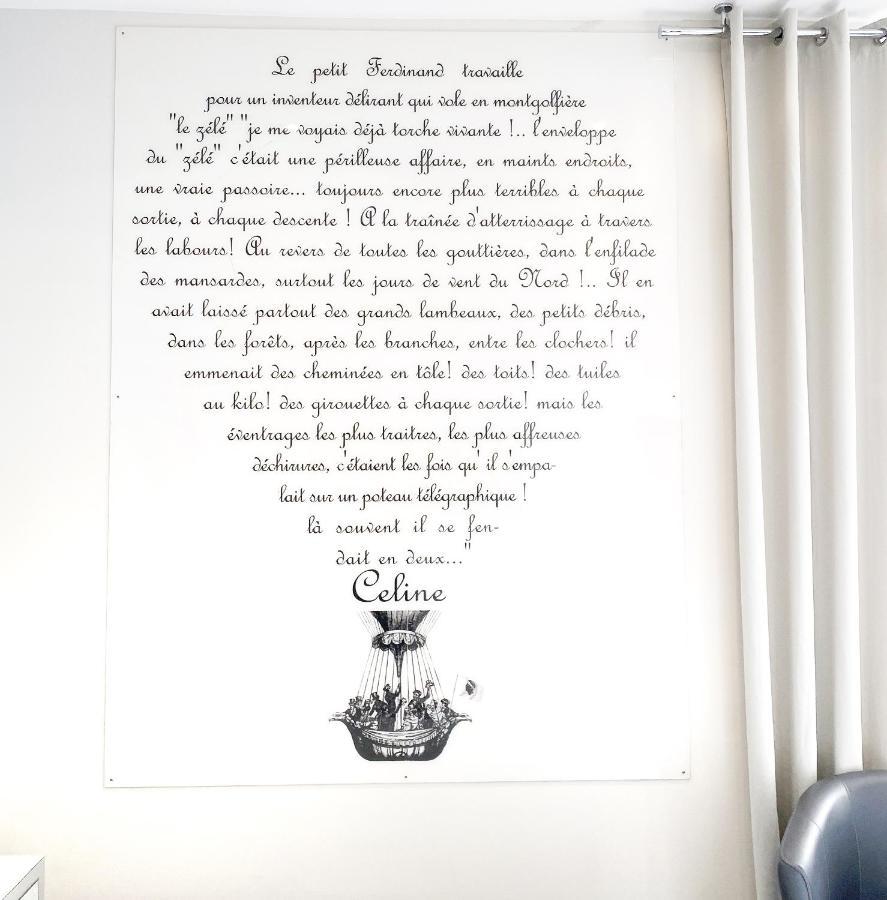 Le petit Ferdinand travaille
pour un inventeur délirant qui vole en montgolfière
"le zélé" "je me voyais déjà torche vivante !.. l'enveloppe
du "zélé" c'était une périlleuse affaire, en maints endroits,
une vraie passoire... toujours encore plus terribles à chaque
sortie, à chaque descente ! A la traînée d'atterrissage à travers
les labours! Au revers de toutes les gouttières, dans l'enfilade
des mansardes, surtout les jours de vent du Nord !.. Il en
avait laissé partout des grands lambeaux, des petits débris,
dans les forêts, après les branches, entre les clochers! il
emmenait des cheminées en tôle! des toits! des tuiles
au kilo! des girouettes à chaque sortie! mais les
éventrages les plus traitres, les plus affreuses
déchirures, c'étaient les fois qu' il s'empa-
lait sur un poteau télégraphique !
là souvent il se fen-
dait en deux..."
Celine